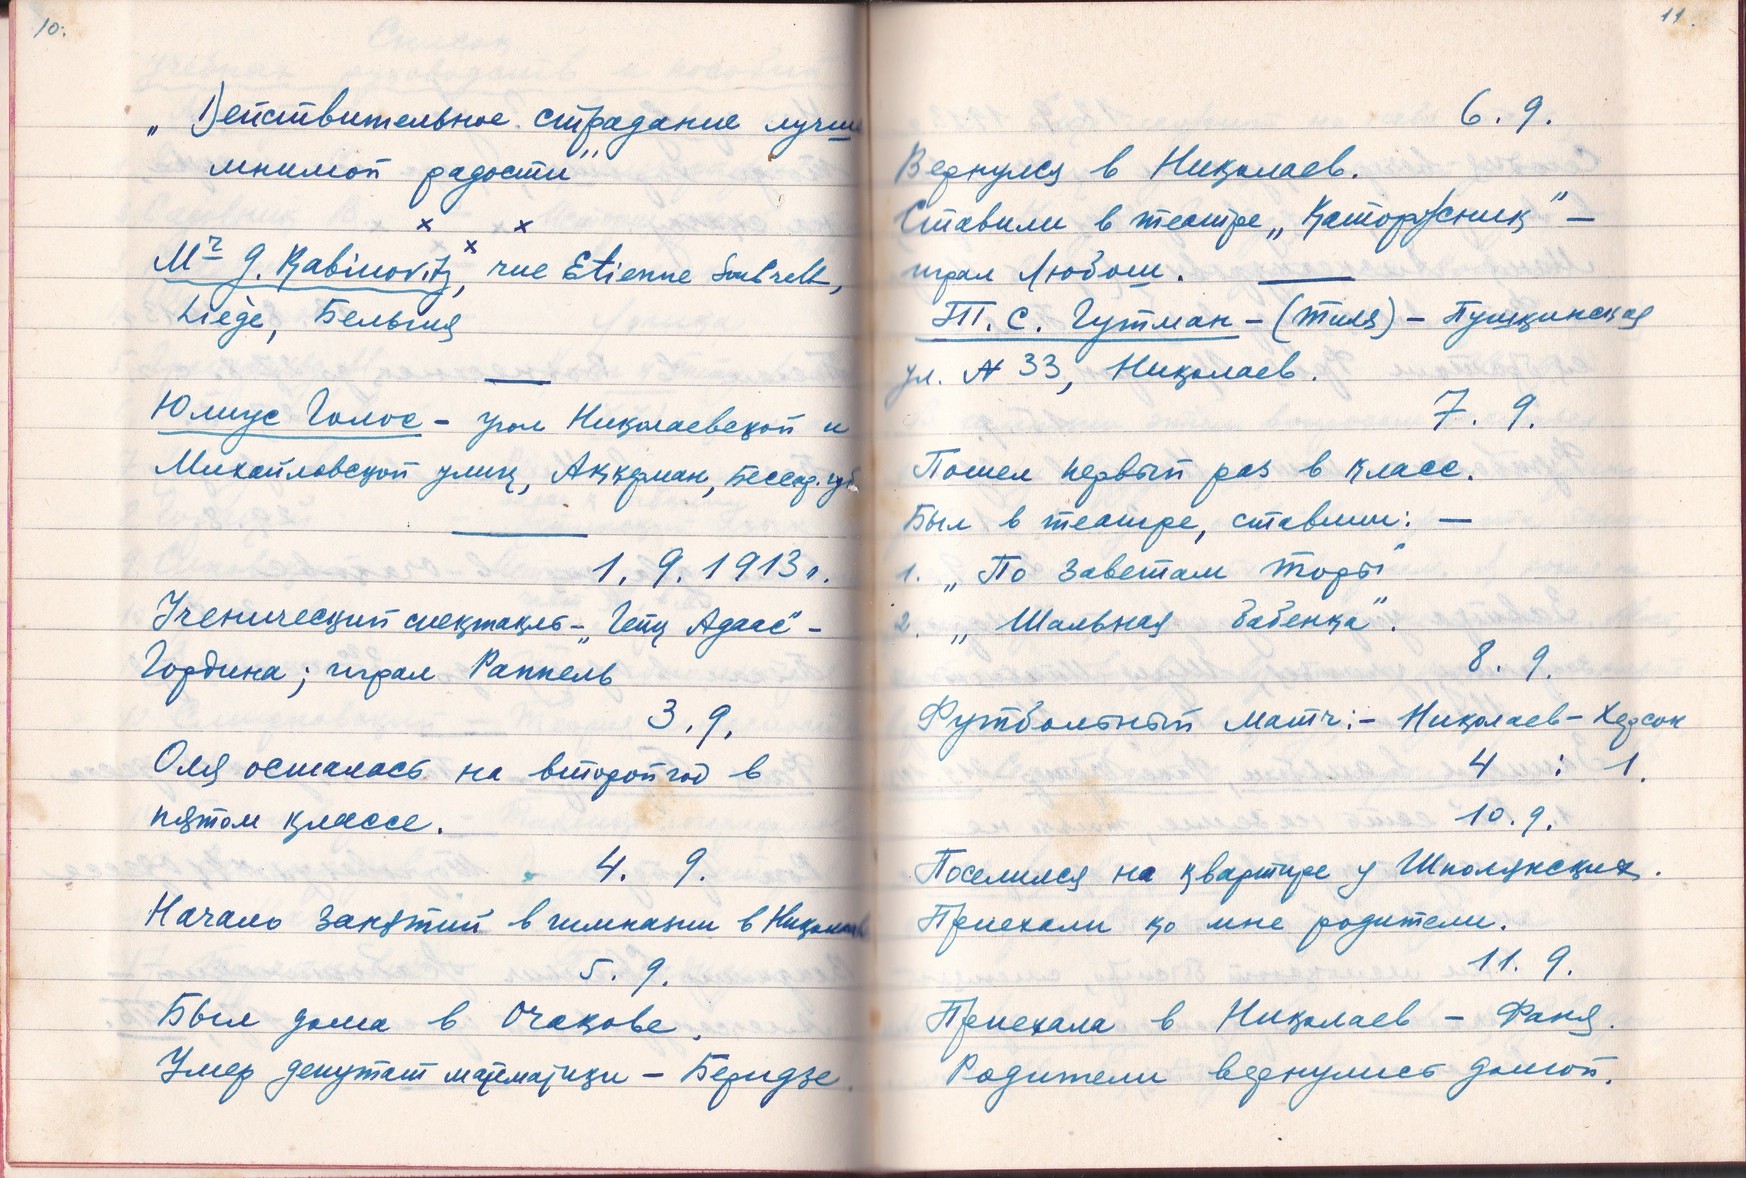 10.
„Действительное страдание лучше
мнимой радости"
x x x
Mr g. Rabinovitz, rue Etienne
Liège, Бельгия
Юлиус Голос – угол Николаевской и
Михайловской улиц, Аккерман, Бессар. губ.
1. 9. 1913 г.
Ученический спектакль – „Гец –
Гордина; играл Раппель
3. 9.
Оля осталась на второй год в
пятом классе.
4. 9.
Начало занятий в гимназии в Николаеве
5. 9.
Был дома в Очакове.
Умер депутат математики – Беридзе.
11.
6. 9.
Вернулся в Николаев.
Ставили в театре „Каторжник" –
играл Любош.
Т. С. Гутман – (Тиля) – Пушкинская
ул. № 33, Николаев.
7. 9.
Пошел первый раз в класс.
Был в театре, ставили: –
1. „По заветам Торы"
2. „Шальная бабенка".
8. 9.
Футбольный матч: – Николаев – Херсон
4 : 1.
10. 9.
Поселился на квартире у Шполянских.
Приехали ко мне родители.
11. 9.
Приехала в Николаев – Фаня.
Родители вернулись домой.